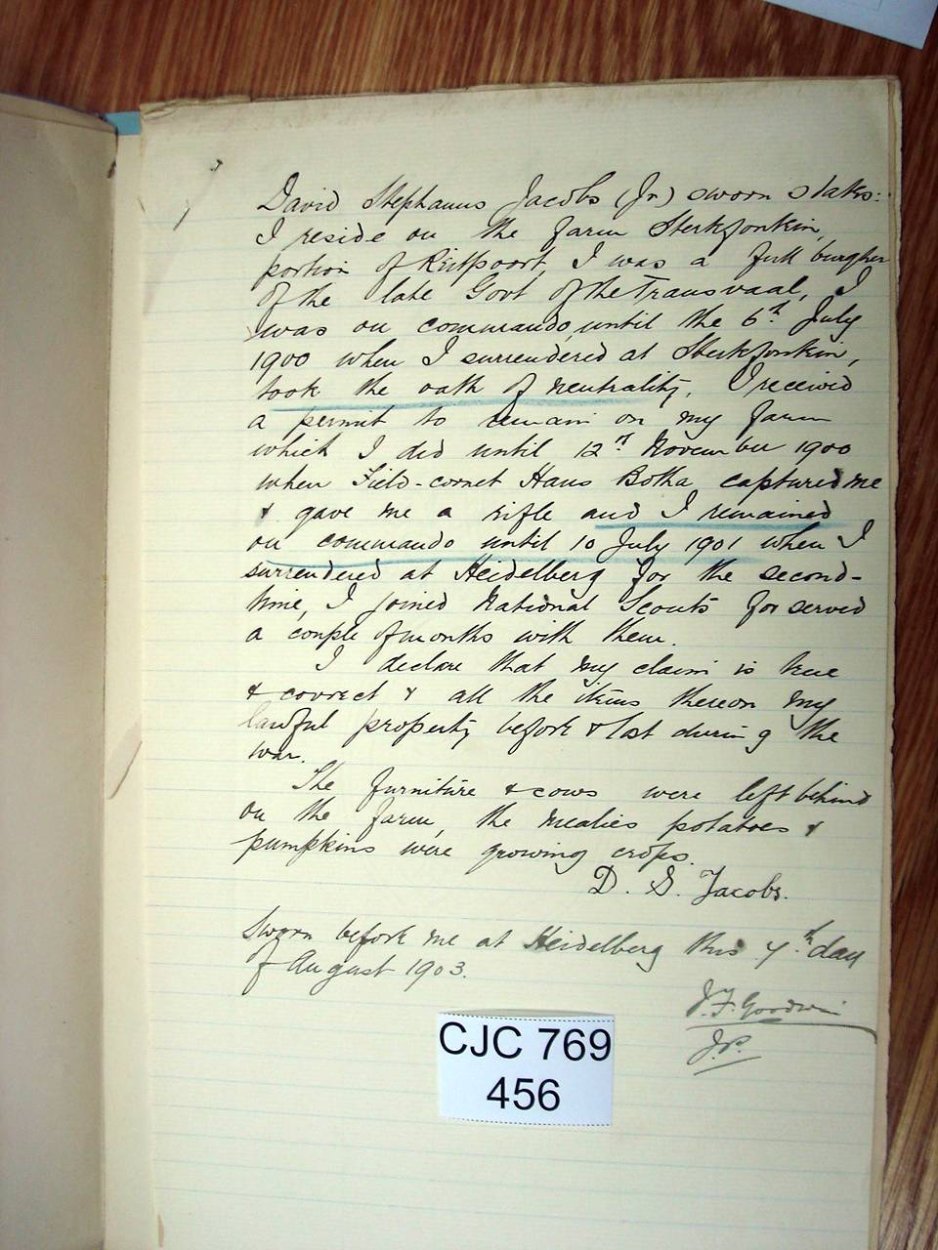 David Stephanus Jacobs (Jr) sworn states:
I reside on the farm Sterkfontein,
portion of Rietpoort, I was a full burgher
of the late Govt of the Transvaal, I
was on commando, until the 6th July
1900 when I surrendered at Sterkfontein,
took the oath of neutrality. I received
a permit to remain on my farm
which I did until 12th November 1900
when Field-cornet Hans Botha captured me
& gave me a rifle and I remained
on commando until 10 July 1901 when I
surrendered at Heidelberg for the second-
time, I joined National Scouts for served
a couple of months with them.
I declare that my claim is true
& correct & all the items thereon my
lawful property before & lost during the
war.
The furniture & cows were left behind
on the farm, the mealies potatoes &
pumpkins were growing crops.
D. S. Jacobs.
Sworn before me at Heidelberg this 4th day
of August 1903.
J.F. Goodwin
J.P.
CJC 769
456